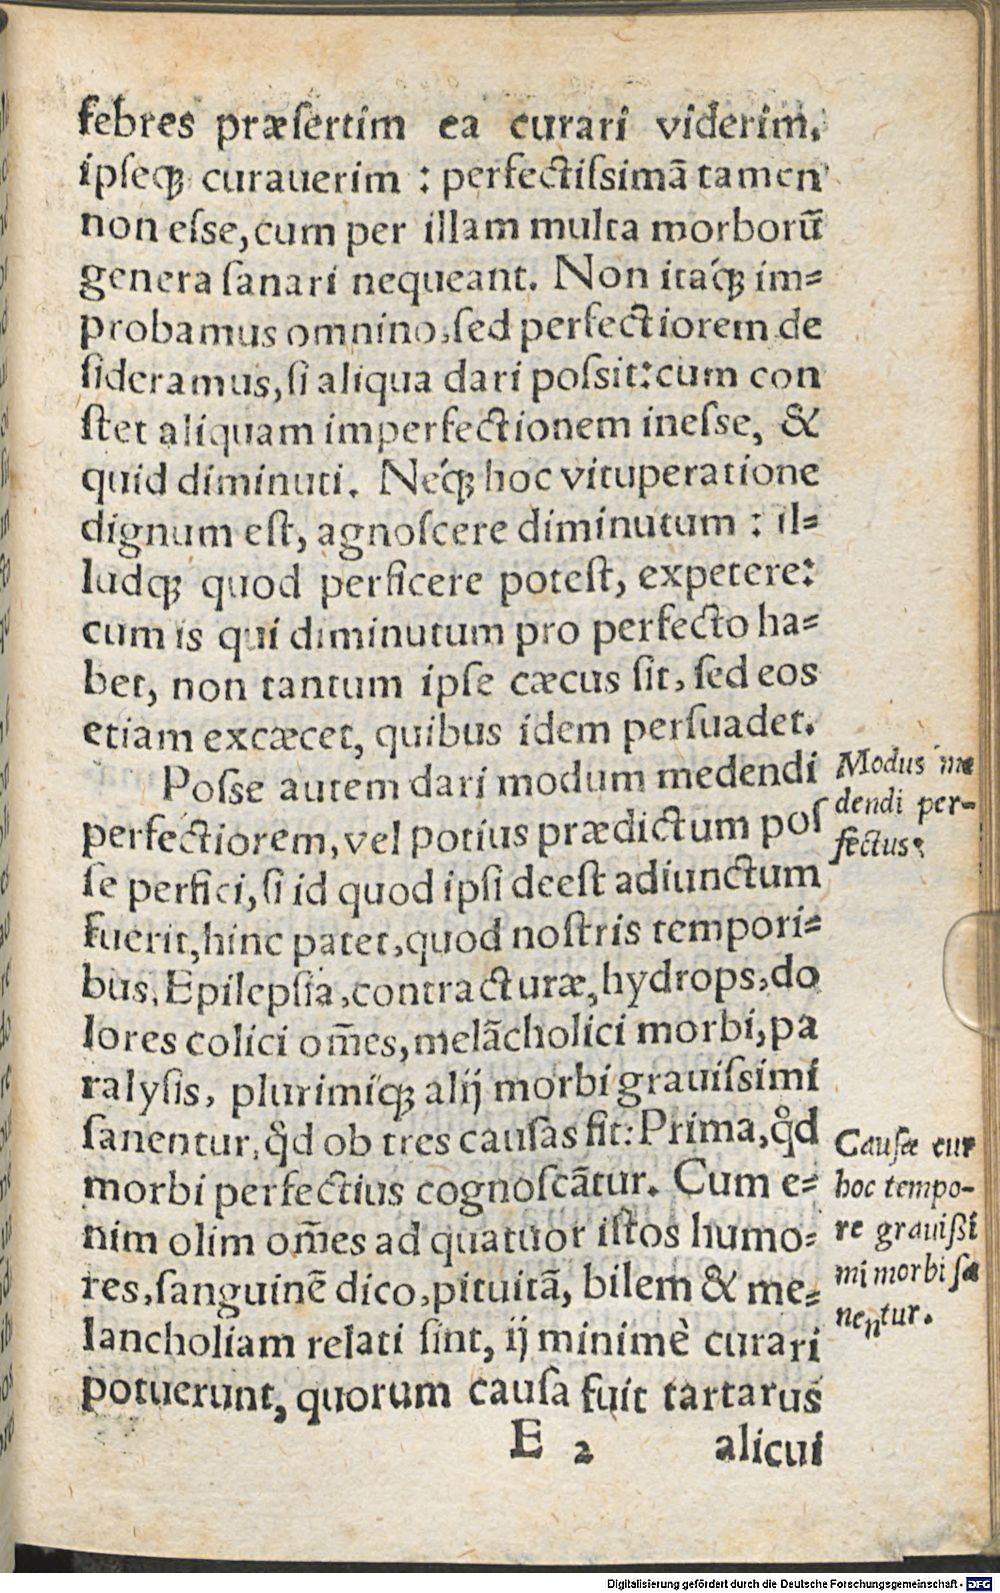 febres præſertim ea curari viderim,
ipſeq; curauerim : perfectiſsimã tamen
non eſse, cum per illam multa morborũ
genera ſanari nequeant. Non itaq́; im-
probamus omnino, ſed perfectiorem de
ſideramus, ſi aliqua dari poſsit: cum con
ſtet aliquam imperfectionem ineſse, &
quid diminuti. Neq́; hoc vituperatione
dignum eſt, agnoſcere diminutum : il-
ludq; quod perficere poteſt, expetere:
cum is qui diminutum pro perfecto ha-
bet, non tantum ipſe cæcus ſit, ſed eos
etiam excæcet, quibus idem perſuadet.
Poſse autem dari modum medendi
perfectiorem, vel potius prædictum poſ
ſe perfici, ſi id quod ipſi deeſt adiunctum
fuerit, hinc patet, quod noſtris tempori-
bus, Epilepſia, contracturæ, hydrops, do
lores colici om̃es, melãcholici morbi, pa
ralyſis, plurimiq́; alij morbi grauiſsimi
ſanentur, q̊d ob tres cauſas fit: Prima, q̊d
morbi perfectius cognoſcãtur. Cum e-
nim olim om̃es ad quatuor iſtos humo-
res, ſanguinẽ dico, pituitã, bilem & me-
lancholiam relati ſint, ij minimè curari
potuerunt, quorum cauſa fuit tartarus
E 2 alicui
Modus me
dendi per-
fectus.
Cauſæ cur
hoc tempo-
re grauißi
mi morbi ſa
nentur.
Digitalisierung gefördert durch die Deutsche Forschungsgemeinschaft - DFG